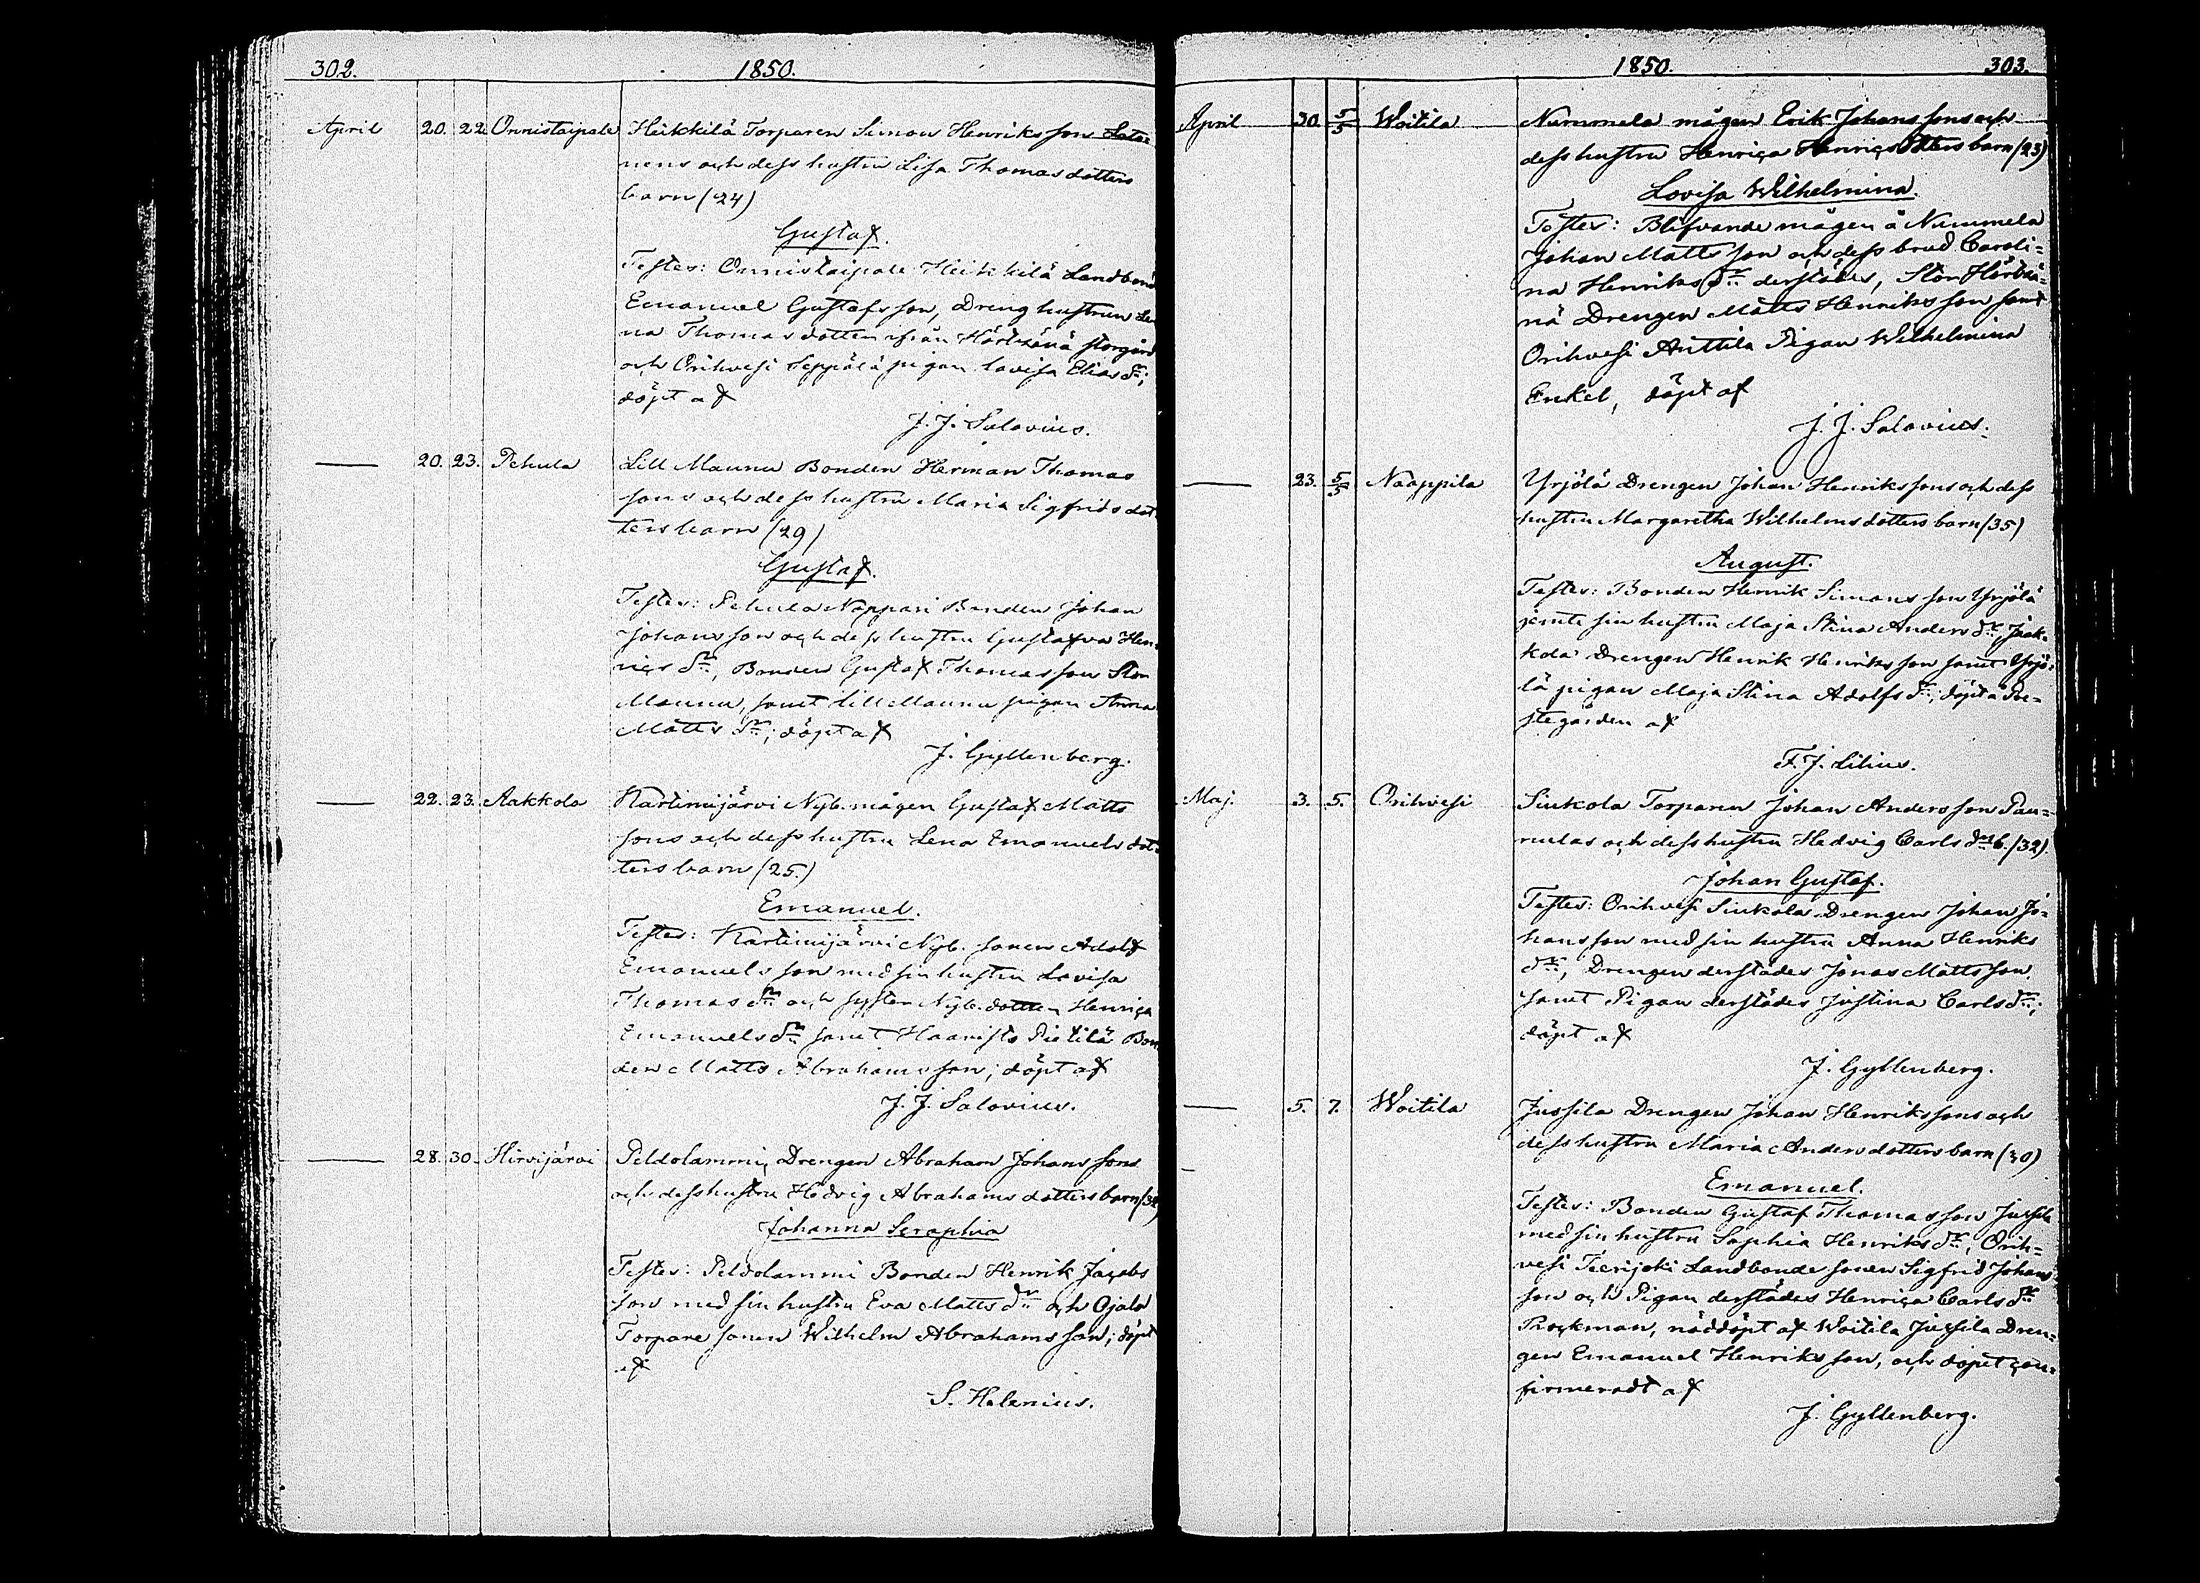 302. 1850.
April 20. 22. Onnistaipale Heikkilä Torparen Simon Henriks sons
nens och dess hustru Lisa Thomas dotters
barn (24)
Gustaf.
Testes: Onnistaipale Heikkilä Landbond
Emanuel Gustafs son, Dreng hustrun Le
na Thomas dotter ifrån Storgård
och Orihvesi Seppälä pigan Lovisa Elias dr;
döpt af
J. J. Salovius.
— 20. 23. Pehula Lill Maunu Bonden Herman Thomas
sons och dess hustru Maria Sigfrids dot
ters barn (29)
Gustaf.
Testes: Pehula Nappari Bonden Johan
Johans son och dess hustru Gustafva Hen
rics dr, Bonden Gustaf Thomas son Stor
Maunu, samt Lill Maunu pigan Anna
Matts dr; döpt af
J. Gyllenberg.
— 22. 23. Aakkola Karlimijärvi Nyb. mågen Gustaf Matts
sons och dess hustru Lena Emanuels dot
ters barn (25.)
Emanuel.
Testes: Karlimijärvi Nyb. sonen Adolf
Emanuels son med sin hustru Lovisa
Thomas dr och syster Nyb. dottern Henrica
Emanuels dr samt Haavisto Pietilä Bon
den Matts Abrahams son; döpt af
J. J. Salovius.
— 28. 30. Hirvijärvi Peldolammi Drengen Abraham Johans sons
och dess hustru Hedvig Abrahams dotters barn (34)
Johanna Seraphia
Testes: Peldolammi Bonden Henrik Jacobs
son med sin hustru Eva Matts dr och Ojala
Torpare sonen Wilhelm Abrahams son; döpt
af
S. Helenius.
1850. 303.
April 30. 5/5 Woitila Nummela mågen Erik Johans sons och
dess hustru Henrica Henrics dotters barn (23)
Lovisa Wilhelmina.
Testes: Blifvande mågen å Nummela
Johan Matts son och dess brud Caroli=
na Henriks dr derstädes, Stor Härtsä=
nä Drengen Matts Henriks son samt
Orihvesi Anttila Pigan Wilhelmina
Enkel, döpt af
J. J. Salovius.
— 23. 5/5 Naappila Yrjölä Drengen Johan Henriks sons och dess
hustru Margaretha Wilhelms dotters barn (35)
August.
Testes: Bonden Henrik Simons son Yrjölä
jemte sin hustru Maja Stina Anders dr, Jaak=
kola Drengen Henrik Henriks son samt Yrjö=
lä pigan Maja Stina Adolfs dr; döpt å Pre=
stegården af
F. J. Lilius.
Maj. 3. 5. Orihvesi Siukola Torparen Johan Anders son Pau=
nulas och dess hustru Hedvig Carls drs b. (32).
Johan Gustaf.
Testes: Orihvesi Siukola Drengen Johan Jo=
hans son med sin hustru Anna Henriks
dr, Drengen derstädes Jonas Matts son
samt Pigan derstädes Justina Carls dr;
döpt af
J. Gyllenberg.
— 5. 7. Woitila Jussila Drengen Johan Henriks sons och
dess hustru Maria Anders dotters barn (30)
Emanuel.
Testes: Bonden Gustaf Thomas son Jussila
med sin hustru Sophia Henriks dr, Orih=
vesi Teerijoki Landbonde sonen Sigfrid Johans
son och Pigan derstädes Henrica Carls dr
Rockman, nöddöpt af Woitila Jussila Dren=
gen Emanuel Henriks son, och döpet con=
firmeradt af
J. Gyllenberg.